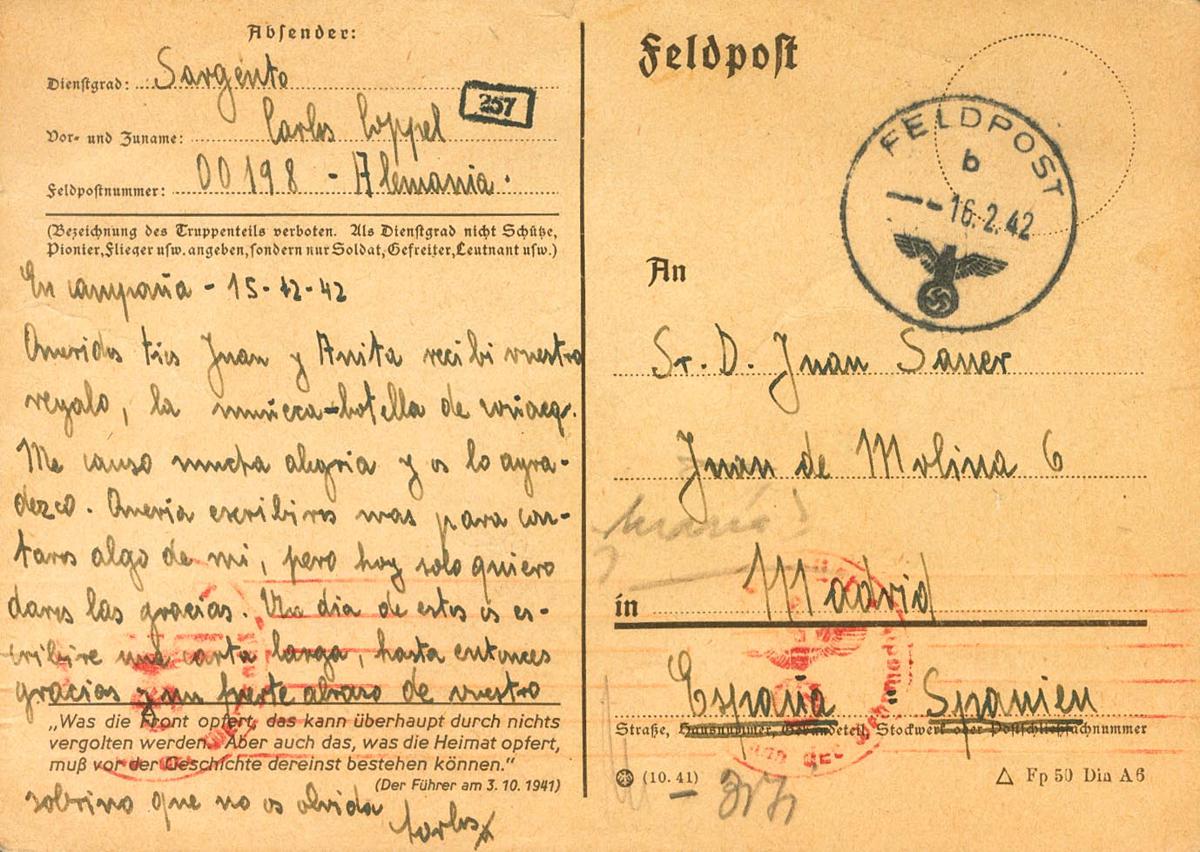 Absender:
Dienstgrad: Sargento
257
Vor- und Zuname: Carlos Coppel
Feldpostnummer: 00198 - Alemania.
(Bezeichnung des Truppenteils verboten. Als Dienstgrad nicht Schütze,
Pionier, Flieger usw. angeben, sondern nur Soldat, Gefreiter, Leutnant usw.)
En campaña - 15-12-42
Queridos tios Juan y Anita recibi vuestro
regalo, la muñeca=botella de coñac.
Me causo mucha alegria y os lo agra-
dezco. Queria escribiros mas para con-
taros algo de mi, pero hoy solo quiero
daros las gracias. Un dia de estos os es-
cribire una carta larga, hasta entonces
gracias y un fuerte abrazo de vuestro
„Was die Front opfert, das kann überhaupt durch nichts
vergolten werden. Aber auch das, was die Heimat opfert,
muß vor der Geschichte dereinst bestehen können.“
(Der Führer am 3. 10. 1941)
sobrino que no os olvida
Carlos
Feldpost
FELDPOST
b
16.2.42
An
Sr. D. Juan Sauer
Juan de Molina 6
in Madrid
España Spanien
Straße, Hausnummer, Gebäudeteil, Stockwerk oder Postschließfachnummer
(10. 41)
Fp 50 Din A6